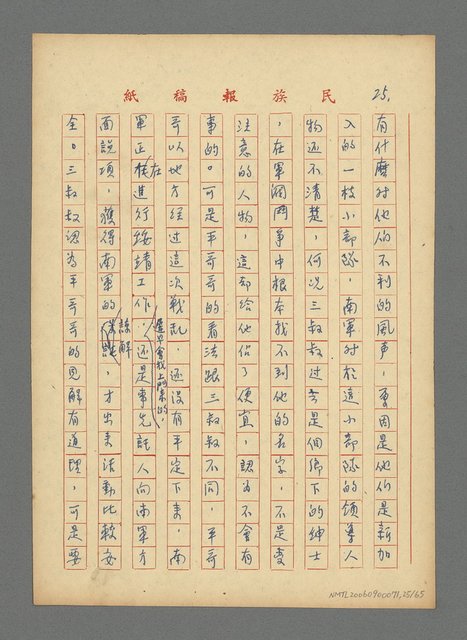 民族報稿紙
25.
有什麼对他们不利的風声，要因是他们是新加
入的一枝小部隊，南軍对於這小部隊的領導人
物还不清楚，何況三叔叔过去是個鄉下的紳士
，在軍閥鬥爭中根本找不到他的名字，不是受
注意的人物，這却给他佔了便宜，認為不會有
事的。可是平哥哥的看法跟三叔叔不同，平哥
哥以地方经过這次戰乱，还没有平定下来，南
軍正在進行綏靖工作，遲早會找上門來的，还是事先託人向南軍方
面說項，獲得南軍的諒解，才出来活動比較安
全。三叔叔認為平哥哥的見解有道理，可是要
NMTL20060900071,25/65